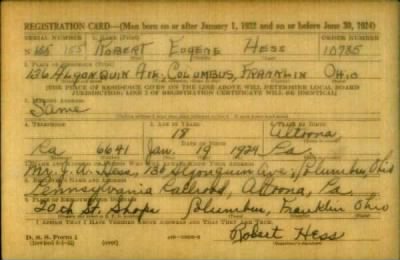 REGISTRATION CARD—(Men born on or after January 1, 1922 and on or before June 30, 1924)
SERIAL NUMBER 1. NAME ORDER NUMBER
155 ROBERT EUGENE HESS 10785
2. PLACE OF RESIDENCE
136 ALGONQUIN AVE. COLUMBUS, FRANKLIN OHIO
(THE PLACE OF RESIDENCE GIVEN ON THE LINE ABOVE WILL DETERMINE LOCAL BOARD
JURISDICTION; LINE 2 OF REGISTRATION CERTIFICATE WILL BE IDENTICAL)
3. MAILING ADDRESS
Same
4. TELEPHONE 5. AGE IN YEARS 6. PLACE OF BIRTH
18 Altoona
Ra 6641 Jan. 19 1924 Pa.
Mr. J. A. Hess, 136 Algonquin Ave. Columbus, Ohio
Pennsylvania Railroad, Altoona, Pa.
20th St. Shops Columbus, Franklin Ohio
I AFFIRM THAT I HAVE VERIFIED ABOVE ANSWERS AND THAT THEY ARE TRUE.
D. S. S. Form 1
(over)
Robert Hess